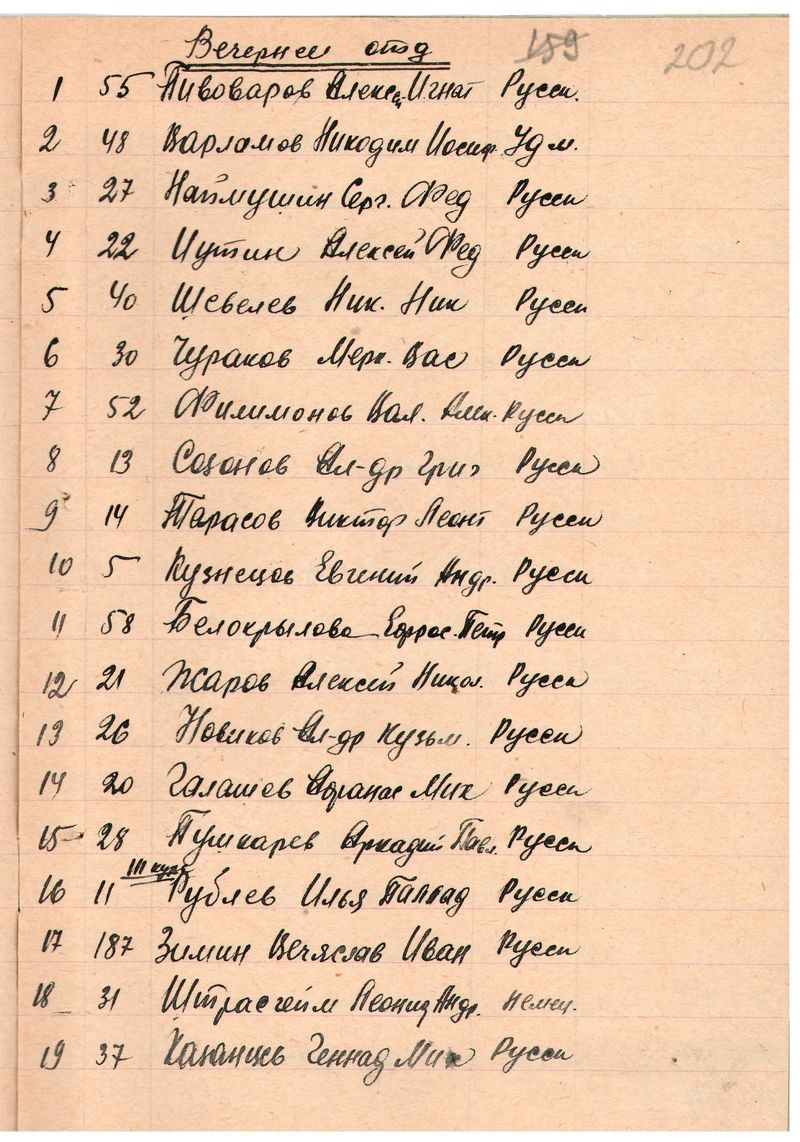 Вечернеи отд 159 202
1 55 Пивоваров Алексе. Игнат Русски.
2 48 Варламов Никодим Иосиф. Удм.
3 27 Наймушин Серг. Фед Русски
4 22 Алексей Фед Русски
5 40 Шевелев Ник. Ник Русски
6 30 Чураков Мерк. Вас Русски
7 52 Филимонов Вал. Алек. Русски
8 13 Созонов Ал-др Григ Русски
9 14 Тарасов Виктор Леонт Русски
10 5 Кузнецов Евгений Андр. Русски
11 58 Белокрылова Ефрос. Петр Русски
12 21 Жаров Алексей Никол. Русски
13 26 Новиков Ал-др Кузьм. Русски
14 20 Галашев Афанас Мих Русски
15 28 Пушкарев Аркадий Павл. Русски
III курс
16 11 Рублев Илья Паллад Русски
17 187 Зимин Вечяслав Иван Русски
18 31 Штрасгейм Леонид Андр. Немец.
19 37 Казанцев Геннад Мих Русски